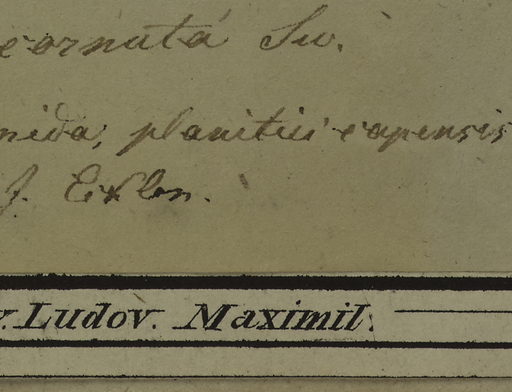 cornutá Sw.
nida, planitiei capensis
J. Eckln.
v. Ludov. Maximil.